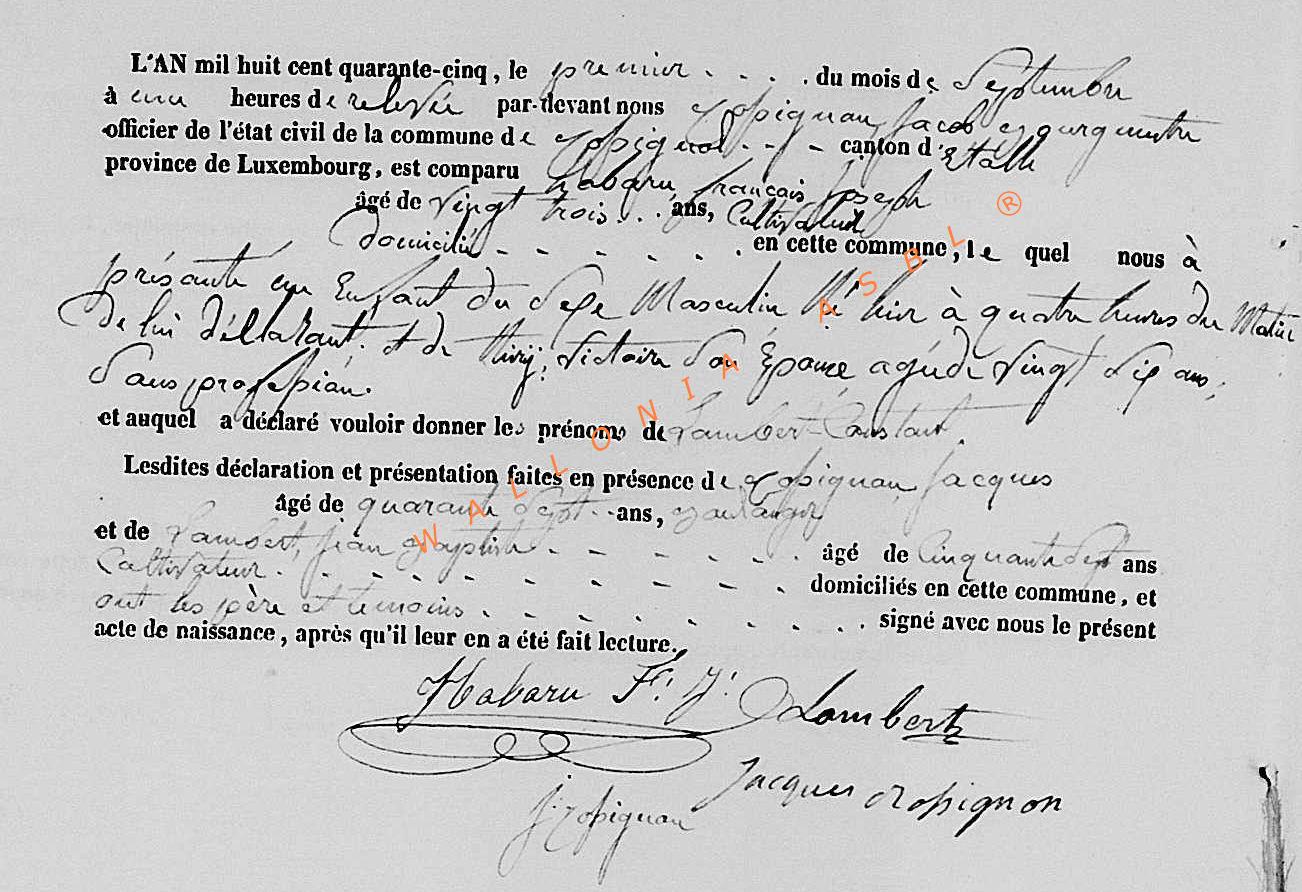 L'AN mil huit cent quarante-cinq, le premier . . . . du mois de Septembre
à une heures de relevée par-devant nous Rossignon, Jacob Bourguemestre
officier de l'état civil de la commune de Rossignol . - . - canton d'Etalle
province de Luxembourg, est comparu habaru, françois, Joseph
âgé de Vingt trois . . . ans, Cultivateur
Domicilié - - - - - . en cette commune, le quel nous à
présenté un Enfant du Sexe Masculin Né hier à quatre heures du Matin
De lui Déclarant, et de thiry, Victoire Son Epouse agée de Vingt Six ans,
Sans profession.
et auquel a déclaré vouloir donner les prénoms de Lambert-Constant.
Lesdites déclaration et présentation faites en présence de Rossignon Jacques
âgé de quarante Sept . . ans, Boulanger
et de Lambert, Jean Baptiste . - - - - - . âgé de Cinquante Sept ans
Cultivateur . - - - - - - - - - . domiciliés en cette commune, et
ont les père et temoins . - - - - - - . . signé avec nous le présent
acte de naissance, après qu'il leur en a été fait lecture.
Habaru F. J. Lambert
Jacques Rossignon
J. Rossignon
WALLONIA ASBL ®